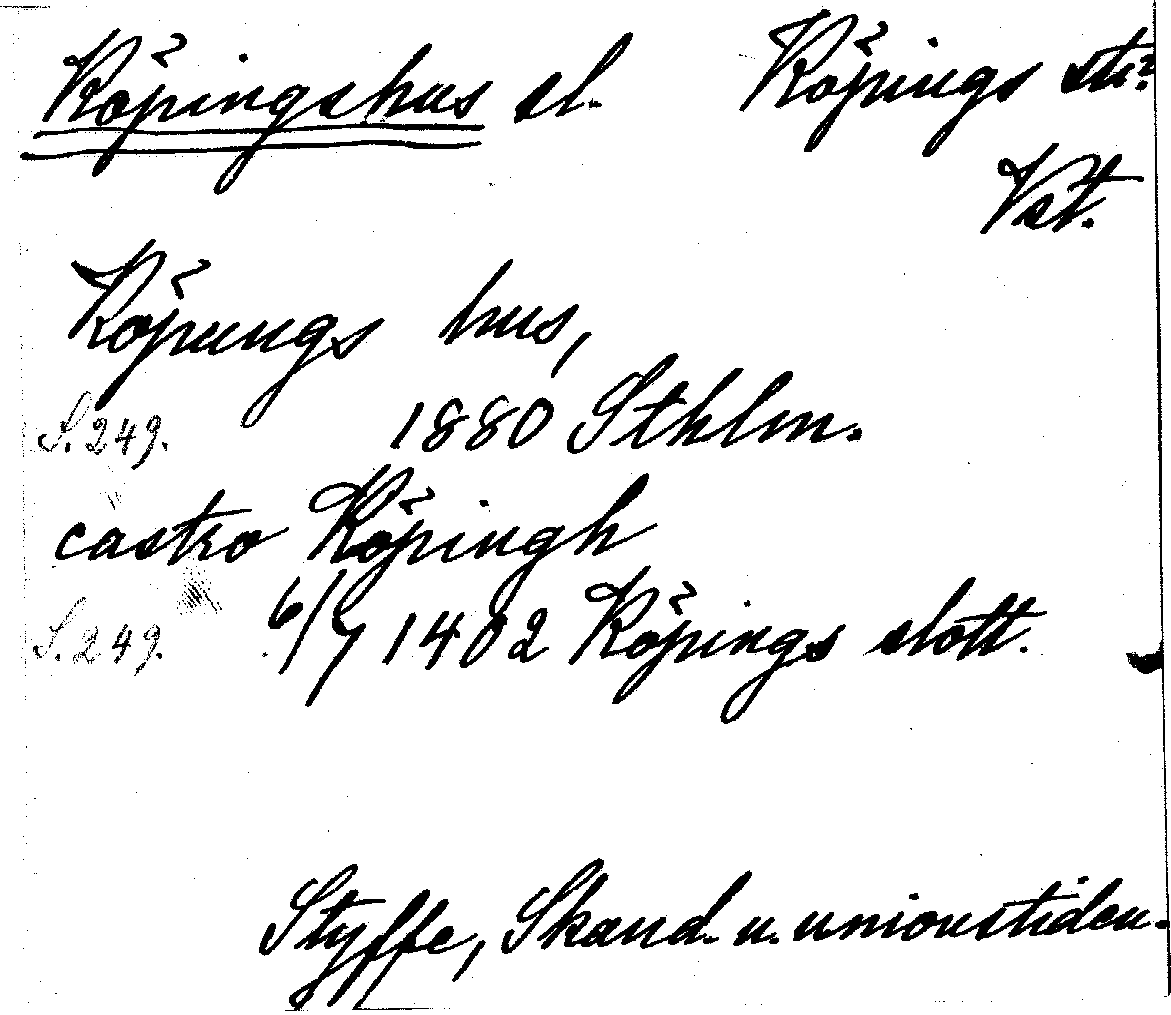 Köpingshus sl. Köpings stn?
Vst.
Köpungs hus,
S. 249. 1880 Sthlm.
castro Köpingh
S. 249. 6/7 1402 Köpings slott.
Styffe, Skand. u. unionstiden.